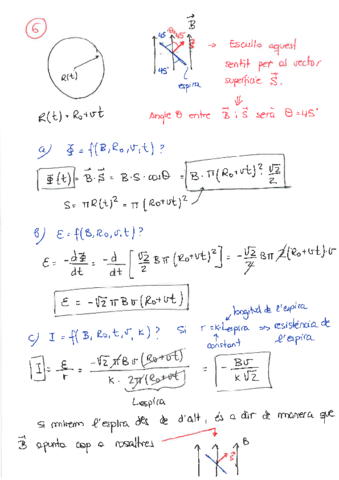 6
R(t)
45° θ 45° B⃗
S⃗
45°
espira
→ Escullo aquest
sentit per al vector
superfície S⃗.
⇓
R(t) = R₀ + vt
Angle θ entre B⃗ i S⃗ serà θ = 45°
a) Φ = f(B, R₀, v, t)?
Φ(t) = B⃗ · S⃗ = B · S · cos θ = B · π(R₀+vt)² · √2/2
S = πR(t)² = π(R₀+vt)²
b) ε = f(B, R₀, v, t)?
ε = -dΦ/dt = -d/dt [√2/2 Bπ(R₀+vt)²] = -√2/2 Bπ 2(R₀+vt) · v
ε = -√2 πBv(R₀+vt)
longitud de l'espira
c) I = f(B, R₀, t, v, k)? Si r = k·Lespira ⇒ resistència de
constant l'espira
I = ε/r = -√2 πBv(R₀+vt) / k · 2π(R₀+vt) = -Bv/k√2
Lespira
Si mirem l'espira des de d'alt, és a dir de manera que
B⃗ apunta cap a nosaltres
B
S⃗